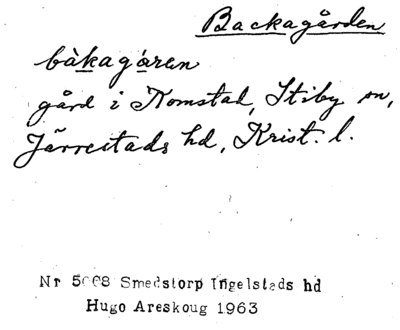 Backagården
bàkagáren
gård i Komstad, Stiby sn,
Järrestads hd, Krist. l.
Nr 5668 Smedstorp Ingelstads hd
Hugo Areskoug 1963